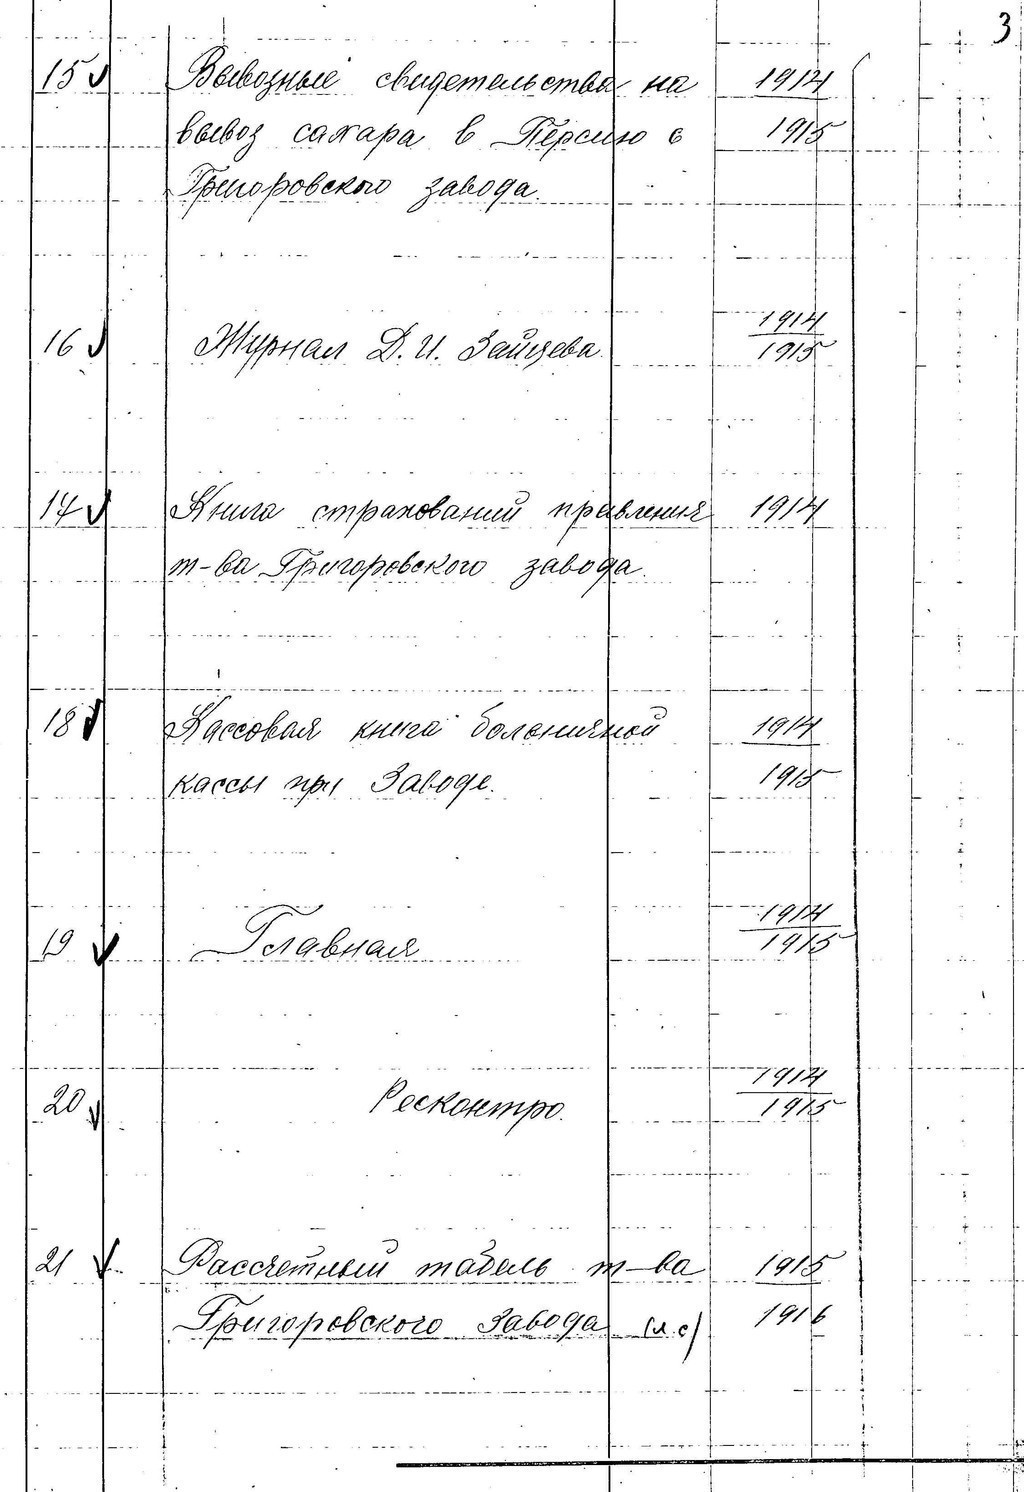 3
15 Вывозные свидетельства на 1914
вывоз сахара в Персию с 1915
Григоровского завода.
16 Журнал Д. И. Зайцева. 1914
1915
17 Книга страхований правления 1914
т-ва Григоровского завода.
18 Кассовая книга больничной 1914
кассы при Заводе. 1915
19 Главная 1914
1915
20 Ресконтро. 1914
1915
21 Рассчетный табель т-ва 1915
Григоровского Завода (л.с) 1916